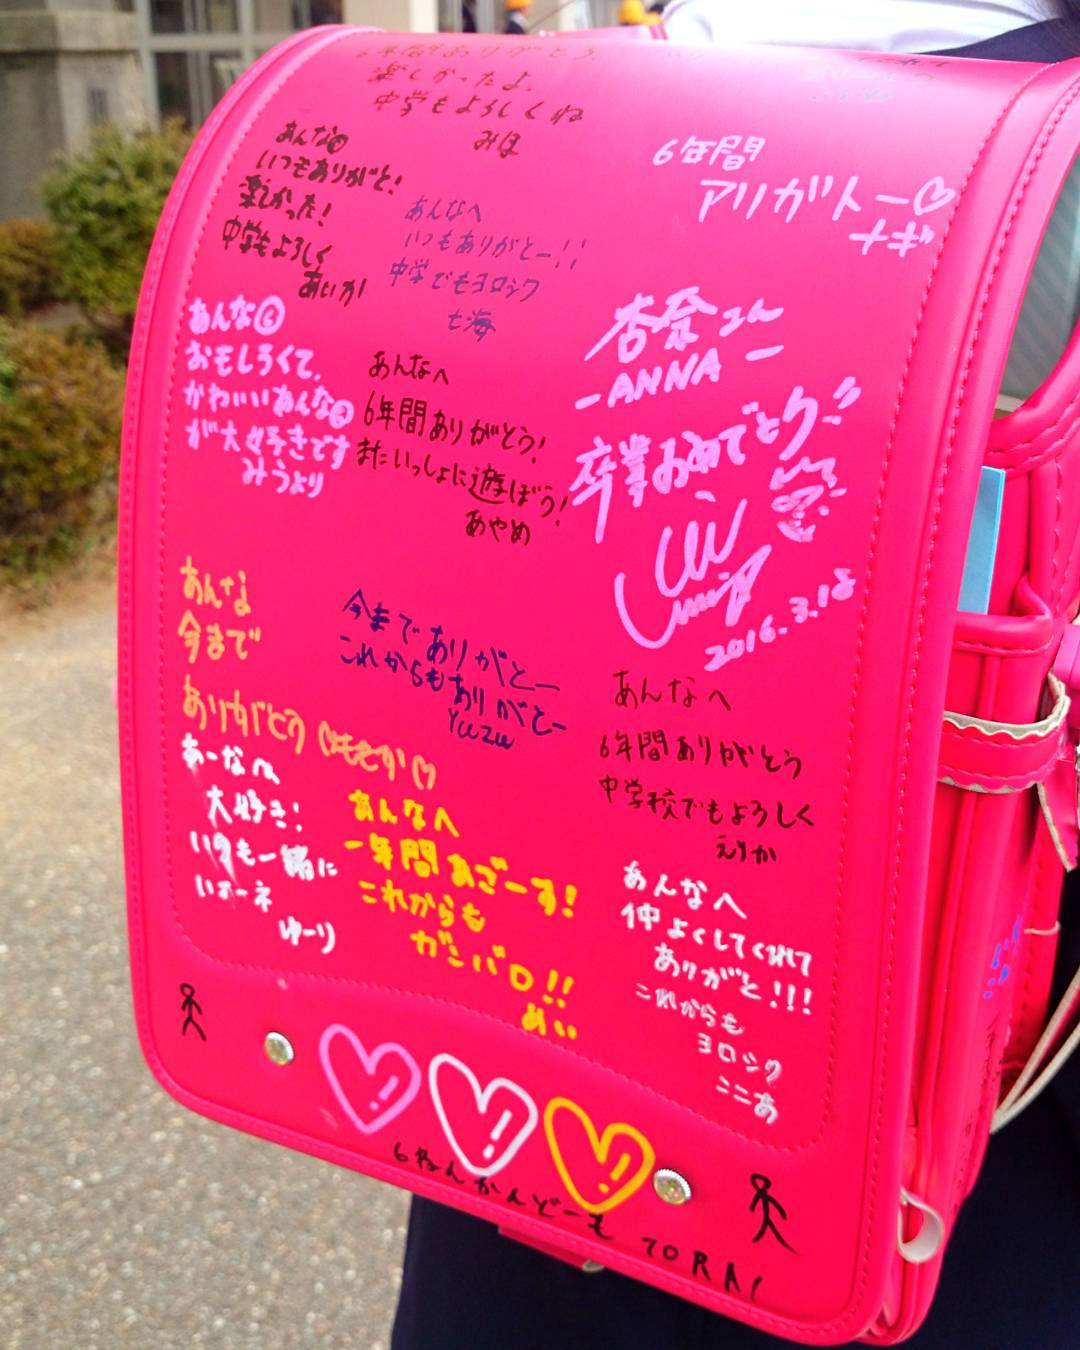 6年間ありがとう.
楽しかったよ.
中学もよろしくね
みほ
あんな
いつもありがと!
楽しかった!
中学もよろしく
あいか
あんなへ
いつもありがとー!!
中学でもヨロシク
七海
6年間
アリガトー♡
ナギ
あんな
おもしろくて,
かわいいあんな
が大好きです
みうより
あんなへ
6年間ありがとう!
またいっしょに遊ぼう!
あやめ
杏奈さん
-ANNA-
卒業おめでとう!!
2016.3.18
あんな
今まで
ありがとう ♡ももか♡
今までありがとー
これからもありがとー
Yuzu
あんなへ
6年間ありがとう
中学校でもよろしく
えりか
あーなへ
大好き!
いつも一緒に
いよーネ
ゆーり
あんなへ
一年間あざーす!
これからも
ガンバロ!!
めい
あんなへ
仲よくしてくれて
ありがと!!!
これからも
ヨロシク
ここあ
6ねんかんどーも TORA!